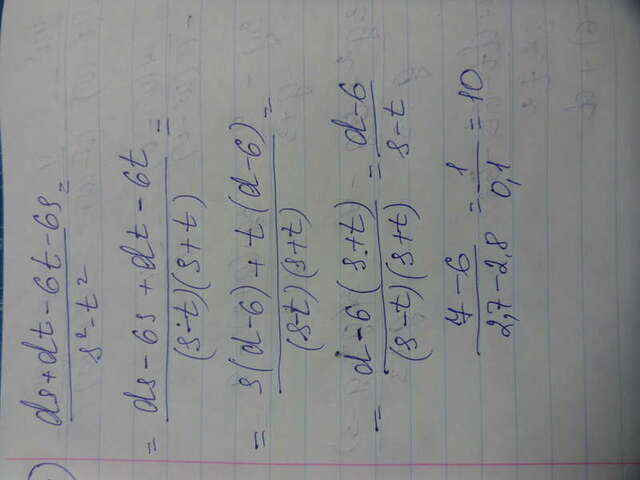 (ds+dt-6t-6s)/(s²-t²) =
= (ds-6s+dt-6t)/((s-t)(s+t)) =
= (s(d-6)+t(d-6))/((s-t)(s+t)) =
= (d-6(s+t))/((s-t)(s+t)) = (d-6)/(s-t)
(7-6)/(2,7-2,8) = 1/(0,1) = 10